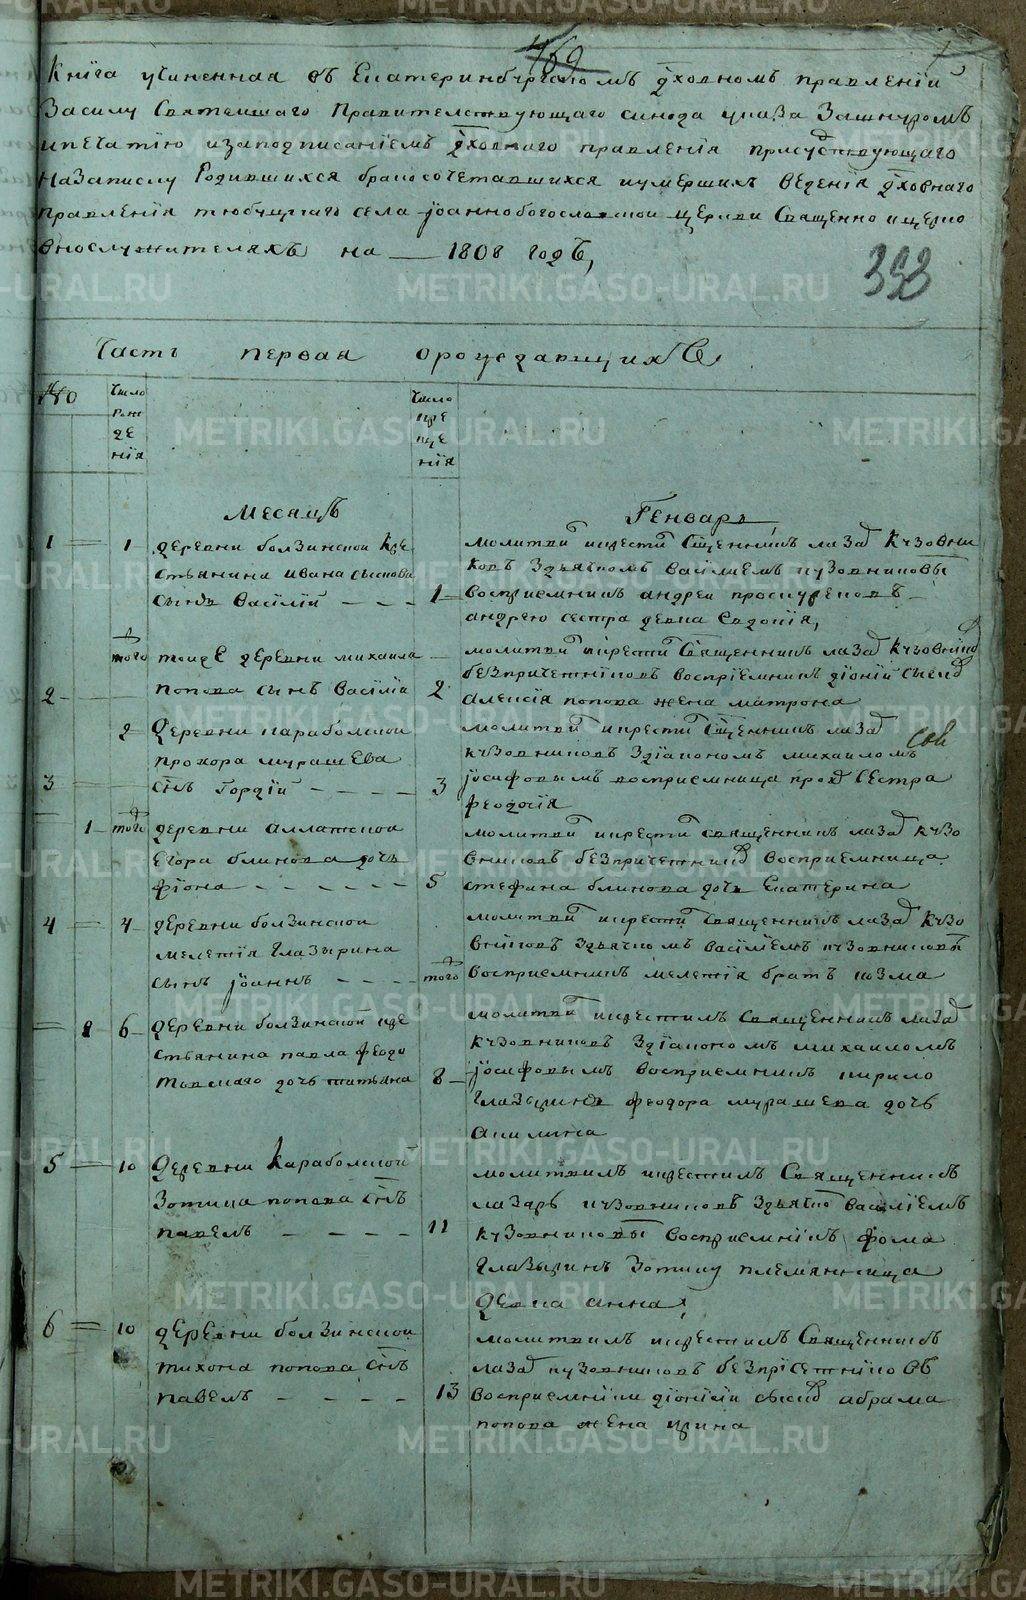 469
1
Книга учиненная въ Екатеринбургскомъ дховномъ правленiи
Засилу Святеишаго Правителствующаго синода указа Зашнуромъ
ипечатiю изаподписанiемъ дховнаго правленiя присудствующаго
Назаписку Родившихся бракосочетавшихся иумершихъ ведения дховнаго
правленiя тюбукцкаго села iоаннобогословской церкви Священно ицерко
внослужителяхъ на — 1808 годъ,
393
METRIKI.GASO-URAL.RU
Часть первая орождающихся
№
Число Рож де нiя
Число кре ще нiя
Месяцъ Генварь
1 1 деревни болзинской Кре
стьянина ивана сыскова
сынъ Василiй - - - 1
молитвил икрестил Сщенникъ лазар Кузовни
ковъ Здьячкомъ Василиемъ кузовниковы
восприемникъ андреи проскуреновъ
андрею сестра девка Евдокiя,
2 того тоижЕ деревни михаила
попова сынъ Василiй 2
молитвил икрестил Священникъ лазар Кузовник
безпричетниковъ восприемникъ дiонiй
алексiя попова жена матрона
3 2 Деревни караболской
прохора мурашева
снъ Гордiй - - - - 3
молитвил икрестил Сщенникъ лазар
кузовниковъ Здiакономъ михаиломъ
iосифовымъ восприемница прох сЕстра
феодосiя
1 того деревни аллакской
Егора блинова дочь
фiона - - - - - - 5
молитвил икрестил священникъ лазар кузо
вниковъ безпричетник восприемница
стефана блинова дочь Екатерина
4 4 деревни болзинской
мелетiя глазырина
сынъ iоаннъ - - - - того
молитвил икрестил Священникъ лазар кузо
вниковъ Здьячкомъ Василiемъ кузовниковы
восприемникъ мелетiя братъ козма
8 6 деревни болзинской кре
стьянина павла феодо
товскаго дочь татьяна 8
молитвил икрестилъ Священникъ лазар
кузовниковъ Здiакономъ михаиломъ
iосифовымъ восприемникъ кирило
глазыринъ феодора мурашева дочь
акилина
5 10 Деревни Караболской
Зотика попова снъ
павелъ - - - - 11
молитвилъ икрестилъ Священникъ
лазарь кузовниковъ Здьячко Василiемъ
кузовниковы восприемнiкъ фома
глазыринъ Зотику племянница
Девка анна,
6 10 деревни болзинской
тихона попова снъ
павелъ - - - 13
молитвилъ икрестилъ Священникъ
лазар кузовниковъ безпричетнiковъ
восприемнiки дiонiсiи абрама
попова жена ирина